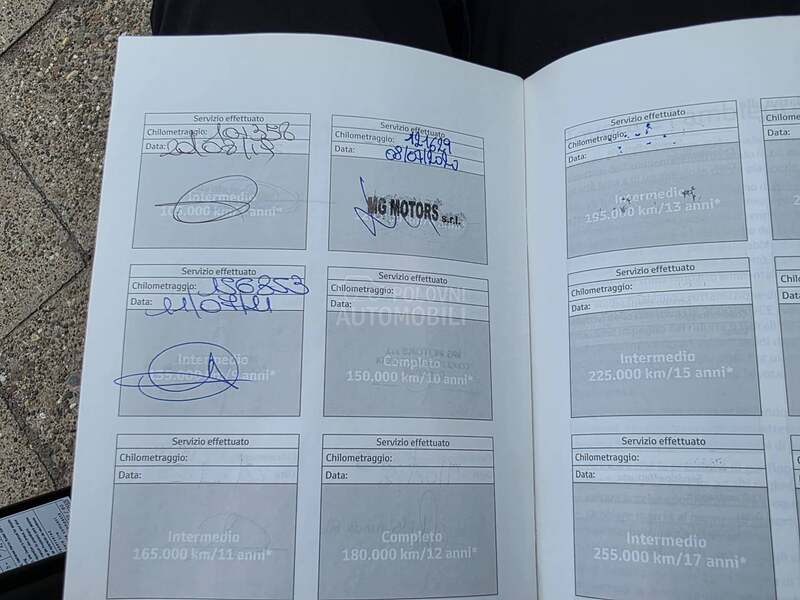 Servizio effettuato
Chilometraggio: 101358
Data:
Intermedio
Servizio effettuato
Chilometraggio: 121629
Data: 08/07/2020
MG MOTORS s.r.l.
Servizio effettuato
Chilometraggio: 136853
Data:
Intermedio
Servizio effettuato
Chilometraggio:
Data:
Completo
150.000 km/10 anni*
Servizio effettuato
Chilometraggio:
Data:
Intermedio
165.000 km/11 anni*
Servizio effettuato
Chilometraggio:
Data:
Completo
180.000 km/12 anni*
Servizio effettuato
Chilometraggio:
Data:
Intermedio
195.000 km/13 anni*
Servizio effettuato
Chilometraggio:
Data:
Intermedio
225.000 km/15 anni*
Servizio effettuato
Chilometraggio:
Data:
Intermedio
255.000 km/17 anni*
POLOVNI
AUTOMOBILI